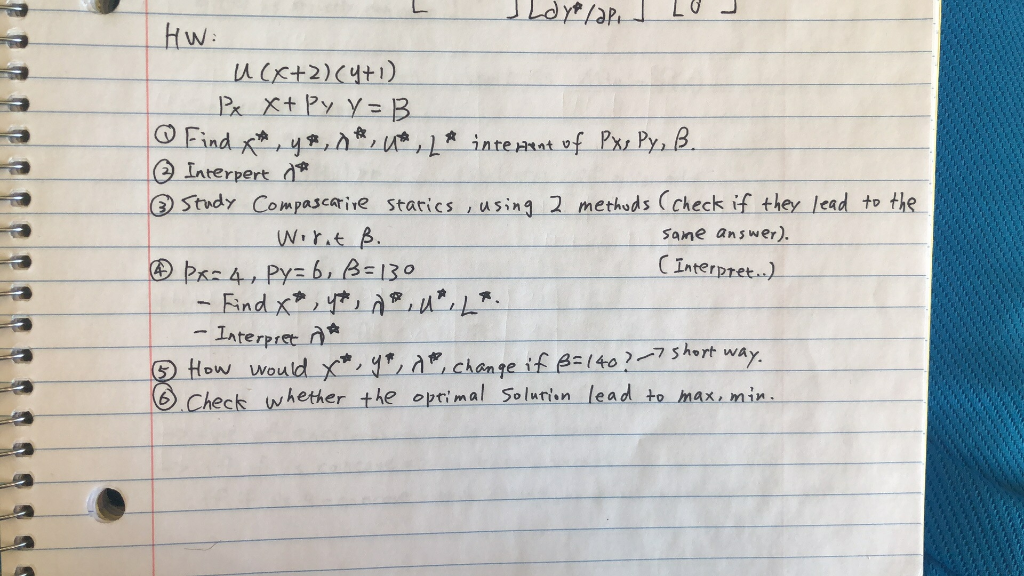 ∂y*/∂P₁ 0
HW:
U(x+2)(y+1)
Px X + Py Y = B
① Find x*, y*, λ*, U*, L* of Px, Py, B.
② Interpert λ*
③ Study Compascarire statics, using 2 methods (check if they lead to the
W.r.t B. same answer).
④ Px=4, Py=6, B=130 (Interpret..)
- Find x*, y*, λ*, u*, L*.
- Interpret λ*
⑤ How would x*, y*, λ*, change if B=140? → short way.
⑥ Check whether the optimal Solution lead to max, min.